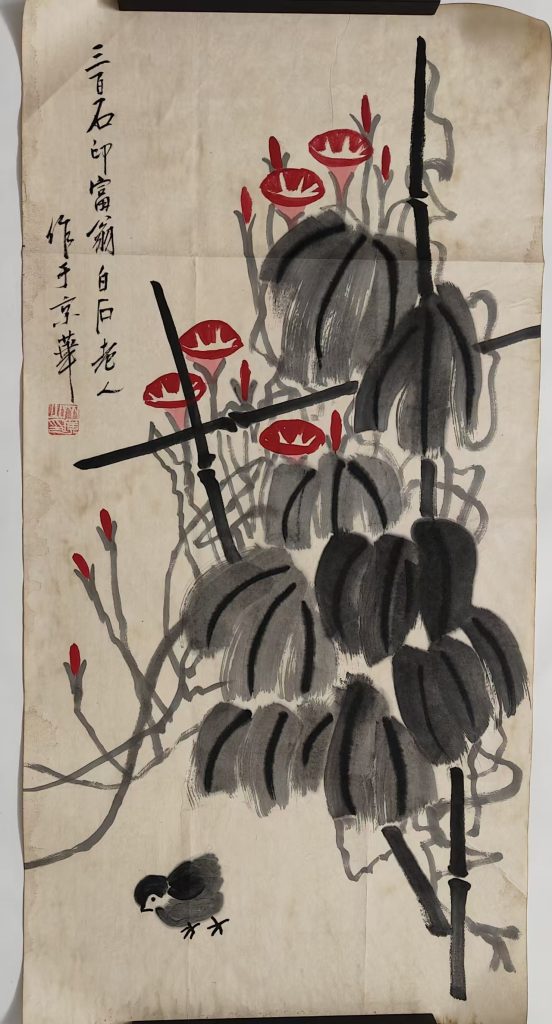 三百石印富翁白石老人
作于京華